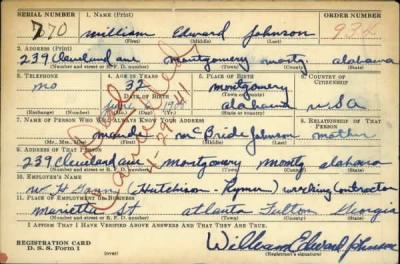 SERIAL NUMBER 1. NAME (Print) ORDER NUMBER
770 William Edward Johnson 934
(First) (Middle) (Last)
2. ADDRESS (Print)
239 Cleveland ave Montgomery montg alabama
(Number and street or R. F. D. number) (Town) (County) (State)
3. TELEPHONE 4. AGE IN YEARS 5. PLACE OF BIRTH 6. COUNTRY OF CITIZENSHIP
no 32 montgomery
DATE OF BIRTH (Town or county)
alabama USA
(Exchange) (Number) (Mo.) (Day) (Yr.) (State or country)
7. NAME OF PERSON WHO WILL ALWAYS KNOW YOUR ADDRESS 8. RELATIONSHIP OF THAT PERSON
maude McBride Johnson mother
(Mr., Mrs., Miss) (First) (Middle) (Last)
9. ADDRESS OF THAT PERSON
239 Cleveland ave montgomery montg alabama
(Number and street or R. F. D. number) (Town) (County) (State)
10. EMPLOYER'S NAME
W H (Hutchison - ) wrecking contractor
11. PLACE OF EMPLOYMENT OR BUSINESS
marietta St atlanta Fulton Georgia
(Number and street or R. F. D. number) (Town) (County) (State)
I AFFIRM THAT I HAVE VERIFIED ABOVE ANSWERS AND THAT THEY ARE TRUE.
REGISTRATION CARD
D. S. S. Form 1
William Edward Johnson
(Registrant's signature)